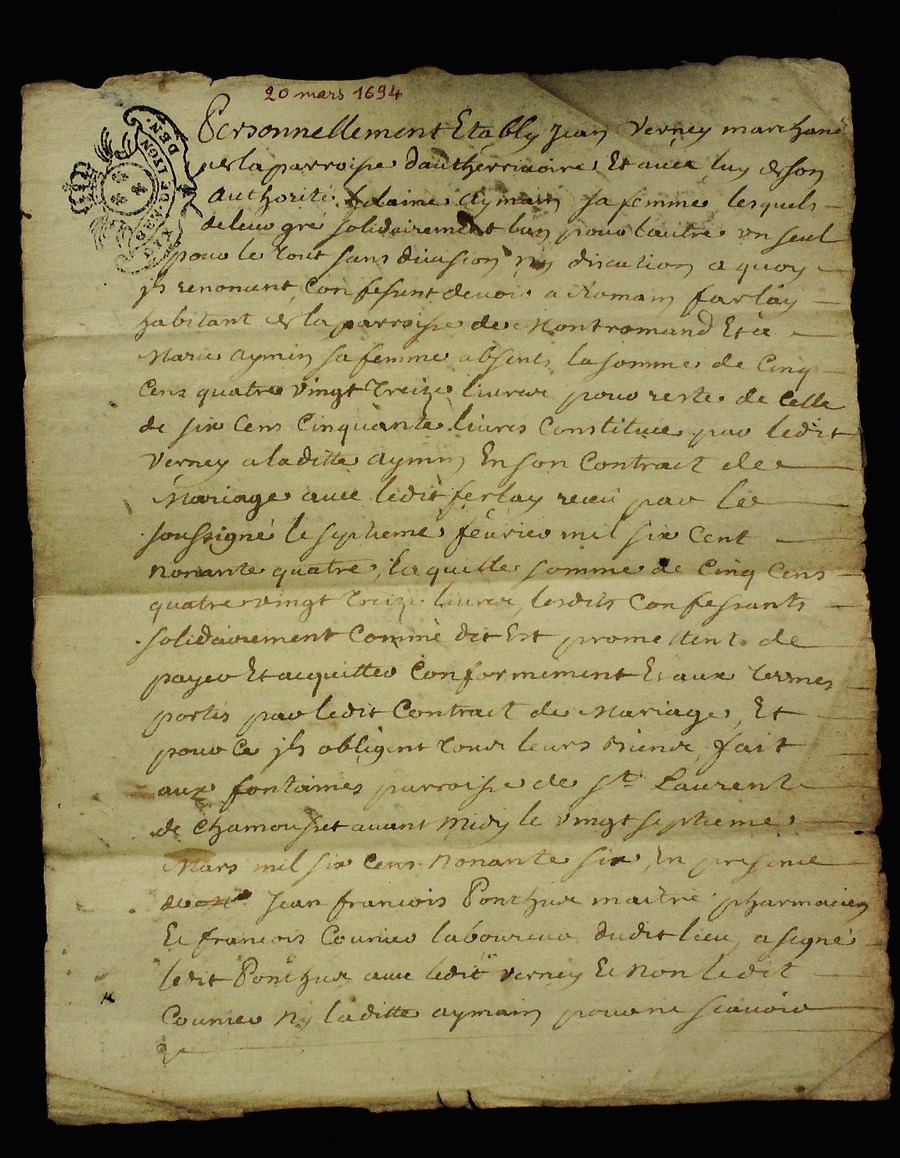 20 mars 1694
GENER DE LYON
Personnellement Estably Jean Verney marchand
de la parroisse dautherrivoire, Et avec luy de son
authorité, aymain sa femme, lesquels
de leur gré solidairement lun pour lautre un seul
pour le tout sans division ny discution a quoy
jls renoncent, Confessent devoir a Romain farlay
habitant de la parroisse de Montromand Et a
Marie aymin sa femme absents la somme de Cinq
Cens quatre vingt treize livres pour reste de Celle
de six Cens Cinquante livres Constituée par ledit
Verney a laditte aymin En son Contract de
Mariage avec ledit ferlay receu par le
soussigné le septieme février mil six Cent
nonante quatre, laquelle somme de Cinq Cens
quatre vingt treize livres, lesdits Confessants
solidairement Comme dit Est promettent de
payer Et acquitter Conformement Et aux termes
portés par ledit Contract de Mariage, Et
pour Ce jls obligent tous leurs biens, fait
aux fontaines parroisse de St. Laurent
de Chamousset avant midy le vingt septieme
Mars mil six Cens nonante six En presence
de Jean françois Ponthus maitre pharmacien
Et françois Courier laboureur dudit lieu, a signé
ledit Ponthus avec ledit verney Et non ledit
Courier ny laditte aymain pour ne scavoir